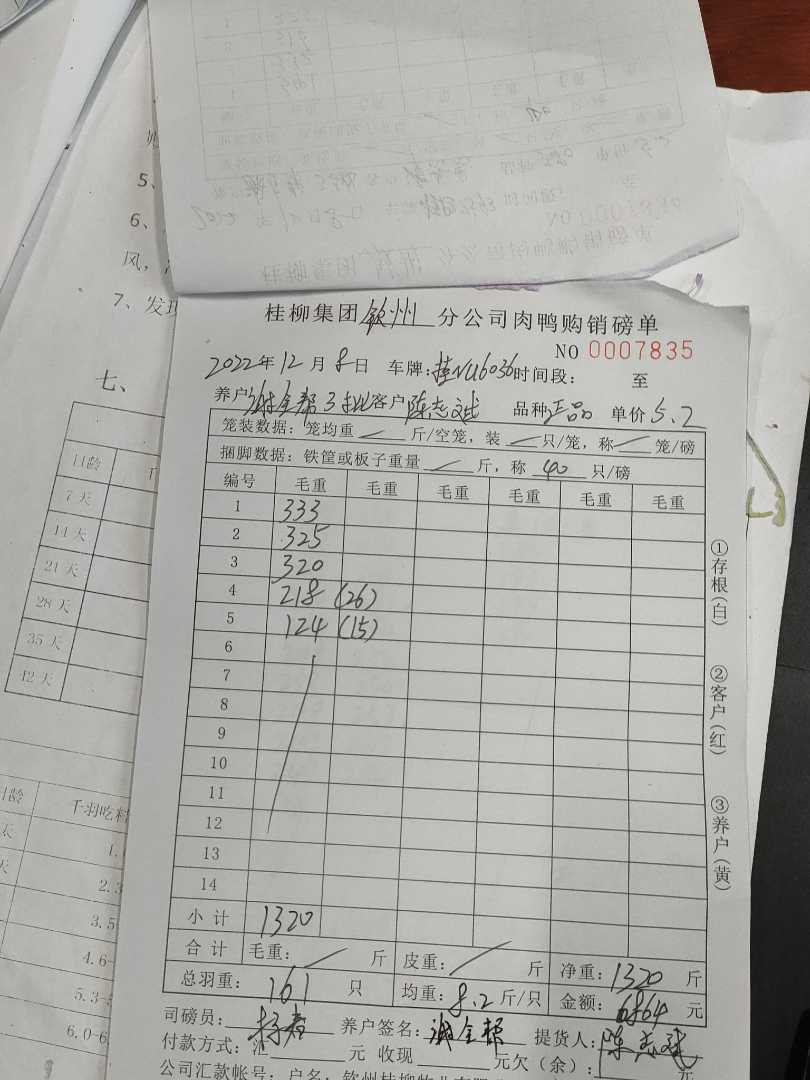 5、
6、
风，
7、发现
七、
日龄
7天
14天
21天
28天
35天
42天
千羽吃料
1.
2.3
3.5
4.6-
5.3-
6.0-6
NO 0007834
桂柳集团钦州分公司肉鸭购销磅单
NO 0007835
2022年12月8日 车牌：桂NU6036时间段： 至
养户 3批客户陈志斌 品种正品 单价5.2
笼装数据：笼均重 斤/空笼，装 只/笼，称 笼/磅
捆脚数据：铁筐或板子重量 斤，称 40 只/磅
编号 毛重 毛重 毛重 毛重 毛重 毛重
1 333
2 325
3 320
4 218 (26)
5 124 (15)
6
7
8
9
10
11
12
13
14
小计 1320
合计 毛重： 斤 皮重： 斤 净重：1320 斤
总羽重：161 只 均重：8.2斤/只 金额：6864 元
司磅员： 养户签名： 提货人：陈志斌
付款方式：汇 元 收现 元欠（余）： 元
公司汇款帐号：户名：钦州桂柳牧业有限
①存根(白)
②客户(红)
③养户(黄)